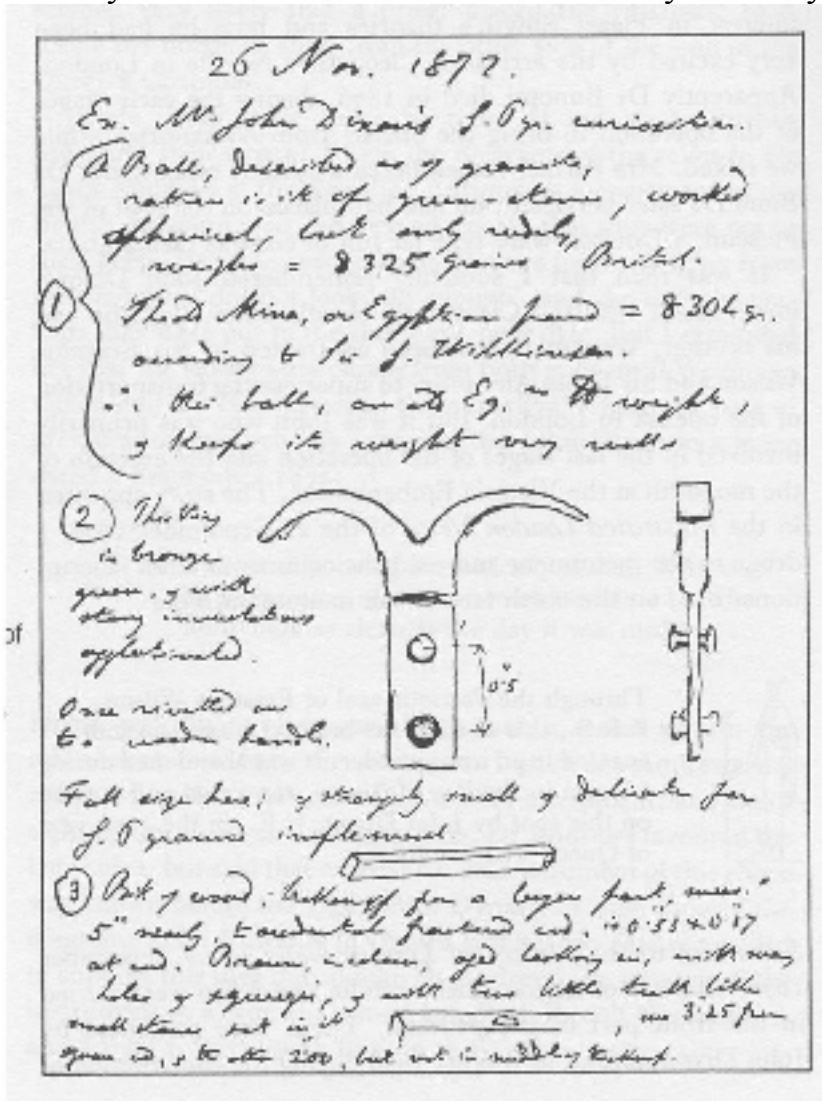 26 Nov. 1872.
Ex. Mr John Dixon's G. Pyr curiosities.
A Ball, described as of granite,
rather is it of green stone, worked
spherical, but only rudely,
weighs = 8325 grains, British.
① The old Mina, or Egyptian pound = 8304 gr.
according to Sir G Wilkinson.
∴ this ball, an old Eg. lb weight,
& keeps its weight very well.
② This thing
in bronze
green, & with
stony incrustations
agglutinated.
0".5
Once riveted on
to a wooden handle.
Full size here; & strangely small & delicate for
G Pyramid implement.
③ Bit of wood broken off from a longer part, meas.
5" nearly, to accidental fractured end, is 0.55 × 0.47
at end. Brown in colour, aged looking, with many
holes &
small stones set in it.
of